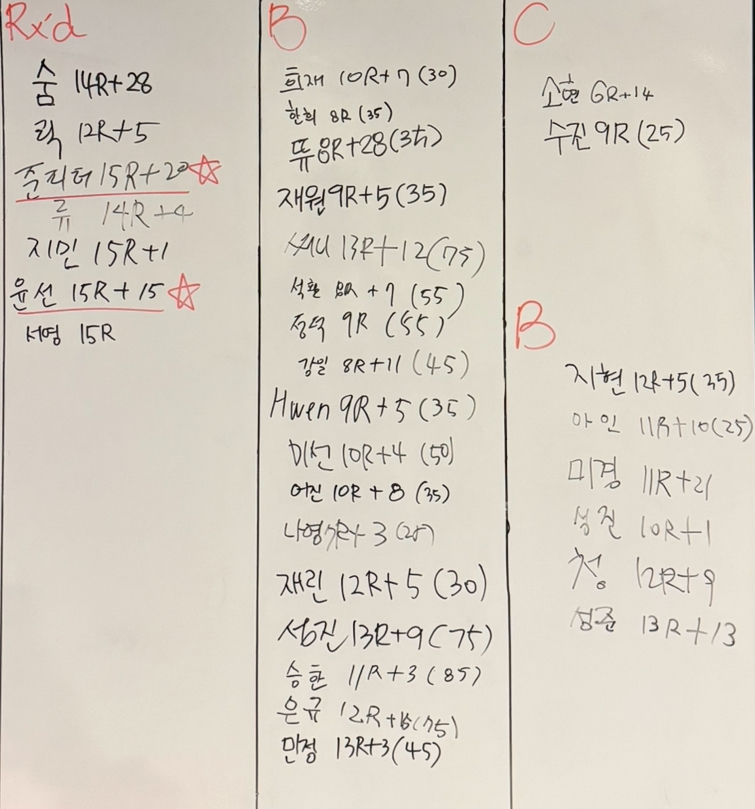 Rx'd
숨 14R+28
락 12R+5
준피터 15R+20
류 14R+4
지민 15R+1
윤선 15R+15
서영 15R
B
희재 10R+7 (30)
한희 8R (35)
뚜 8R+28 (35)
재원 9R+5 (35)
13R+12 (75)
석환 8R +7 (55)
정덕 9R (55)
강일 8R+11 (45)
Hwen 9R+5 (35)
미선 10R+4 (50)
어진 10R+8 (35)
나영 +3
재린 12R+5 (30)
성진 13R+9 (75)
승한 11R+3 (85)
은규 12R+ (75)
민정 13R+3 (45)
C
소현 6R+14
수진 9R (25)
B
지현 12R+5 (35)
아인 11R+10 (25)
미경 11R+21
성진 10R+1
청 12R+9
성준 13R+13